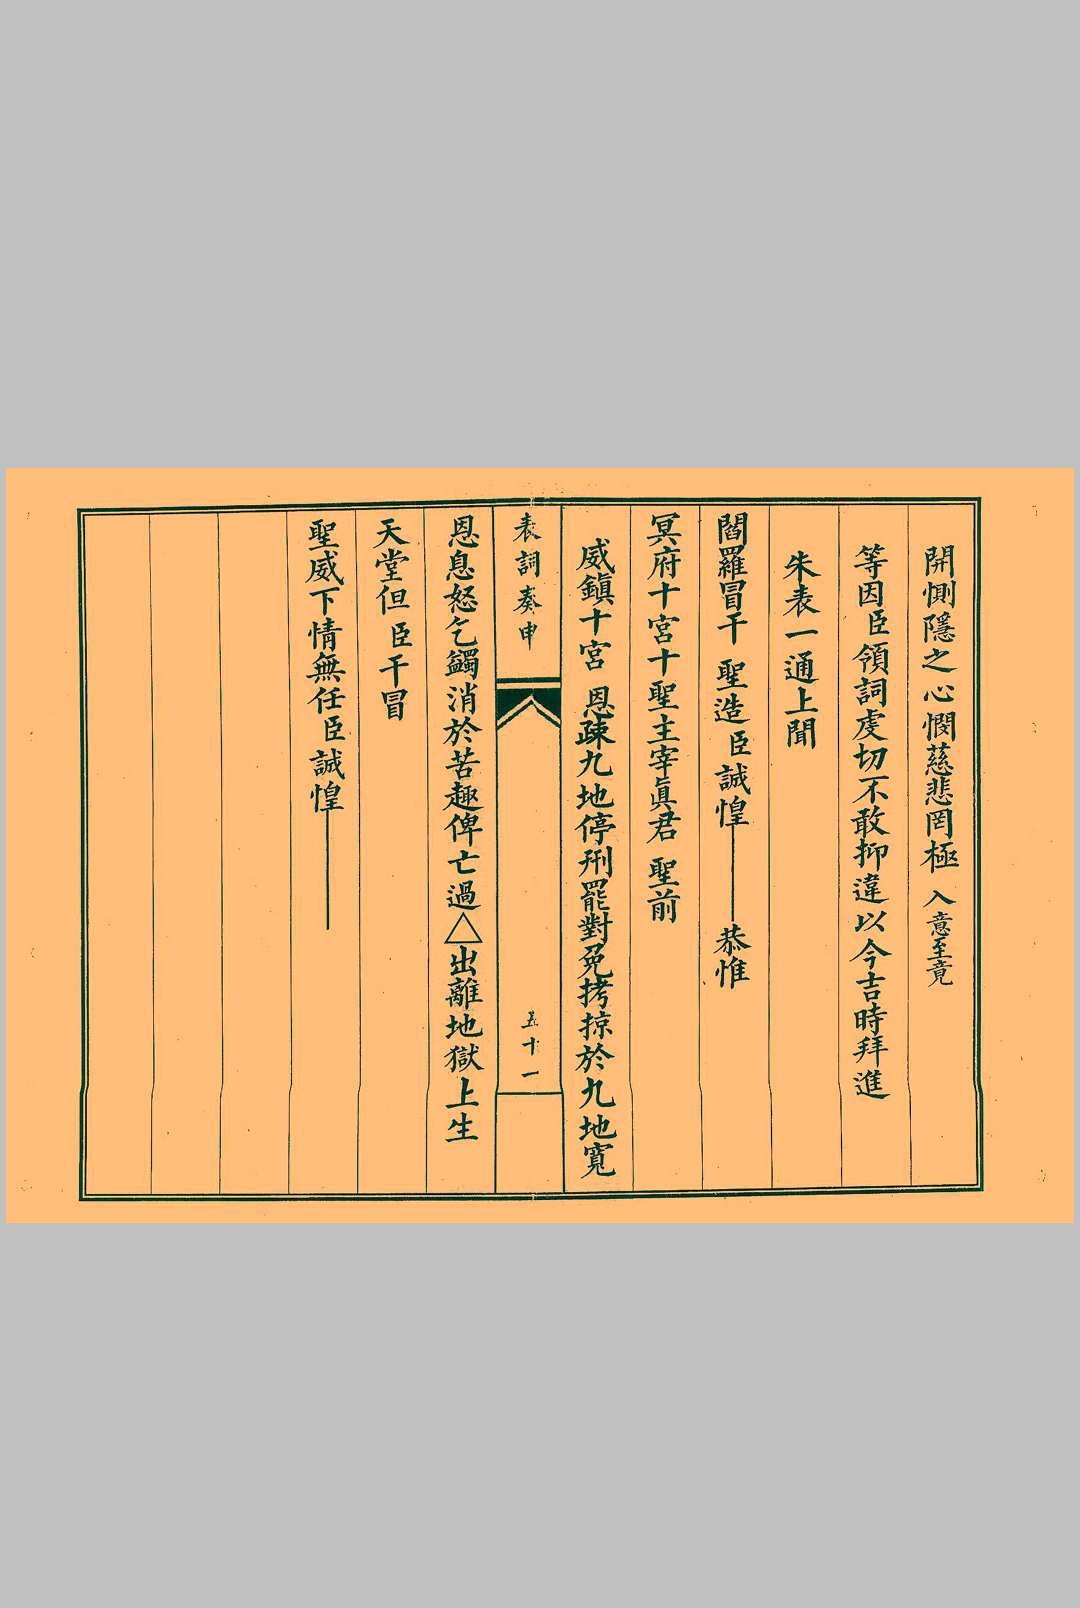 開惻隱之心憫慈悲罔極 入意至竟
等因臣領詞虔切不敢抑違以今吉時拜進
朱表一通上聞
閻羅冒干 聖造臣誠惶——恭惟
冥府十宮十聖主宰眞君 聖前
威鎮十宮 恩疎九地停刑罷對免拷掠於九地寬
表詞奏申
五十一
恩息怒乞蠲消於苦趣俾亡過△出離地獄上生
天堂但臣干冒
聖威下情無任臣誠惶——